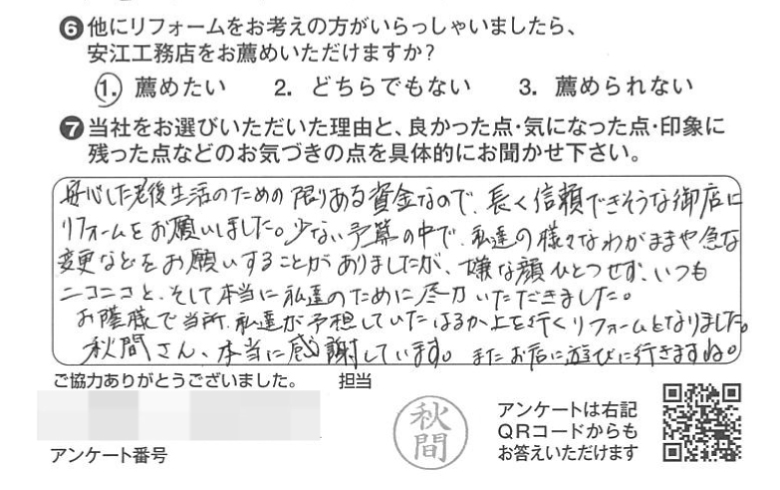 ❻他にリフォームをお考えの方がいらっしゃいましたら、
安江工務店をお薦めいただけますか?
1. 薦めたい 2. どちらでもない 3. 薦められない
❼当社をお選びいただいた理由と、良かった点・気になった点・印象に
残った点などのお気づきの点を具体的にお聞かせ下さい。
安心した老後生活のための限りある資金なので、長く信頼できそうな御店に
リフォームをお願いしました。少ない予算の中で、私達の様々なわがままや急な
変更などをお願いすることがありましたが、嫌な顔ひとつせず、いつも
ニコニコと、そして本当に私達のために尽力いただきました。
お陰様で当所、私達が予想していたはるか上を行くリフォームとなりました。
秋間さん、本当に感謝しています。またお店に遊びに行きますね。
ご協力ありがとうございました。 担当
秋間
アンケート番号
アンケートは右記
QRコードからも
お答えいただけます